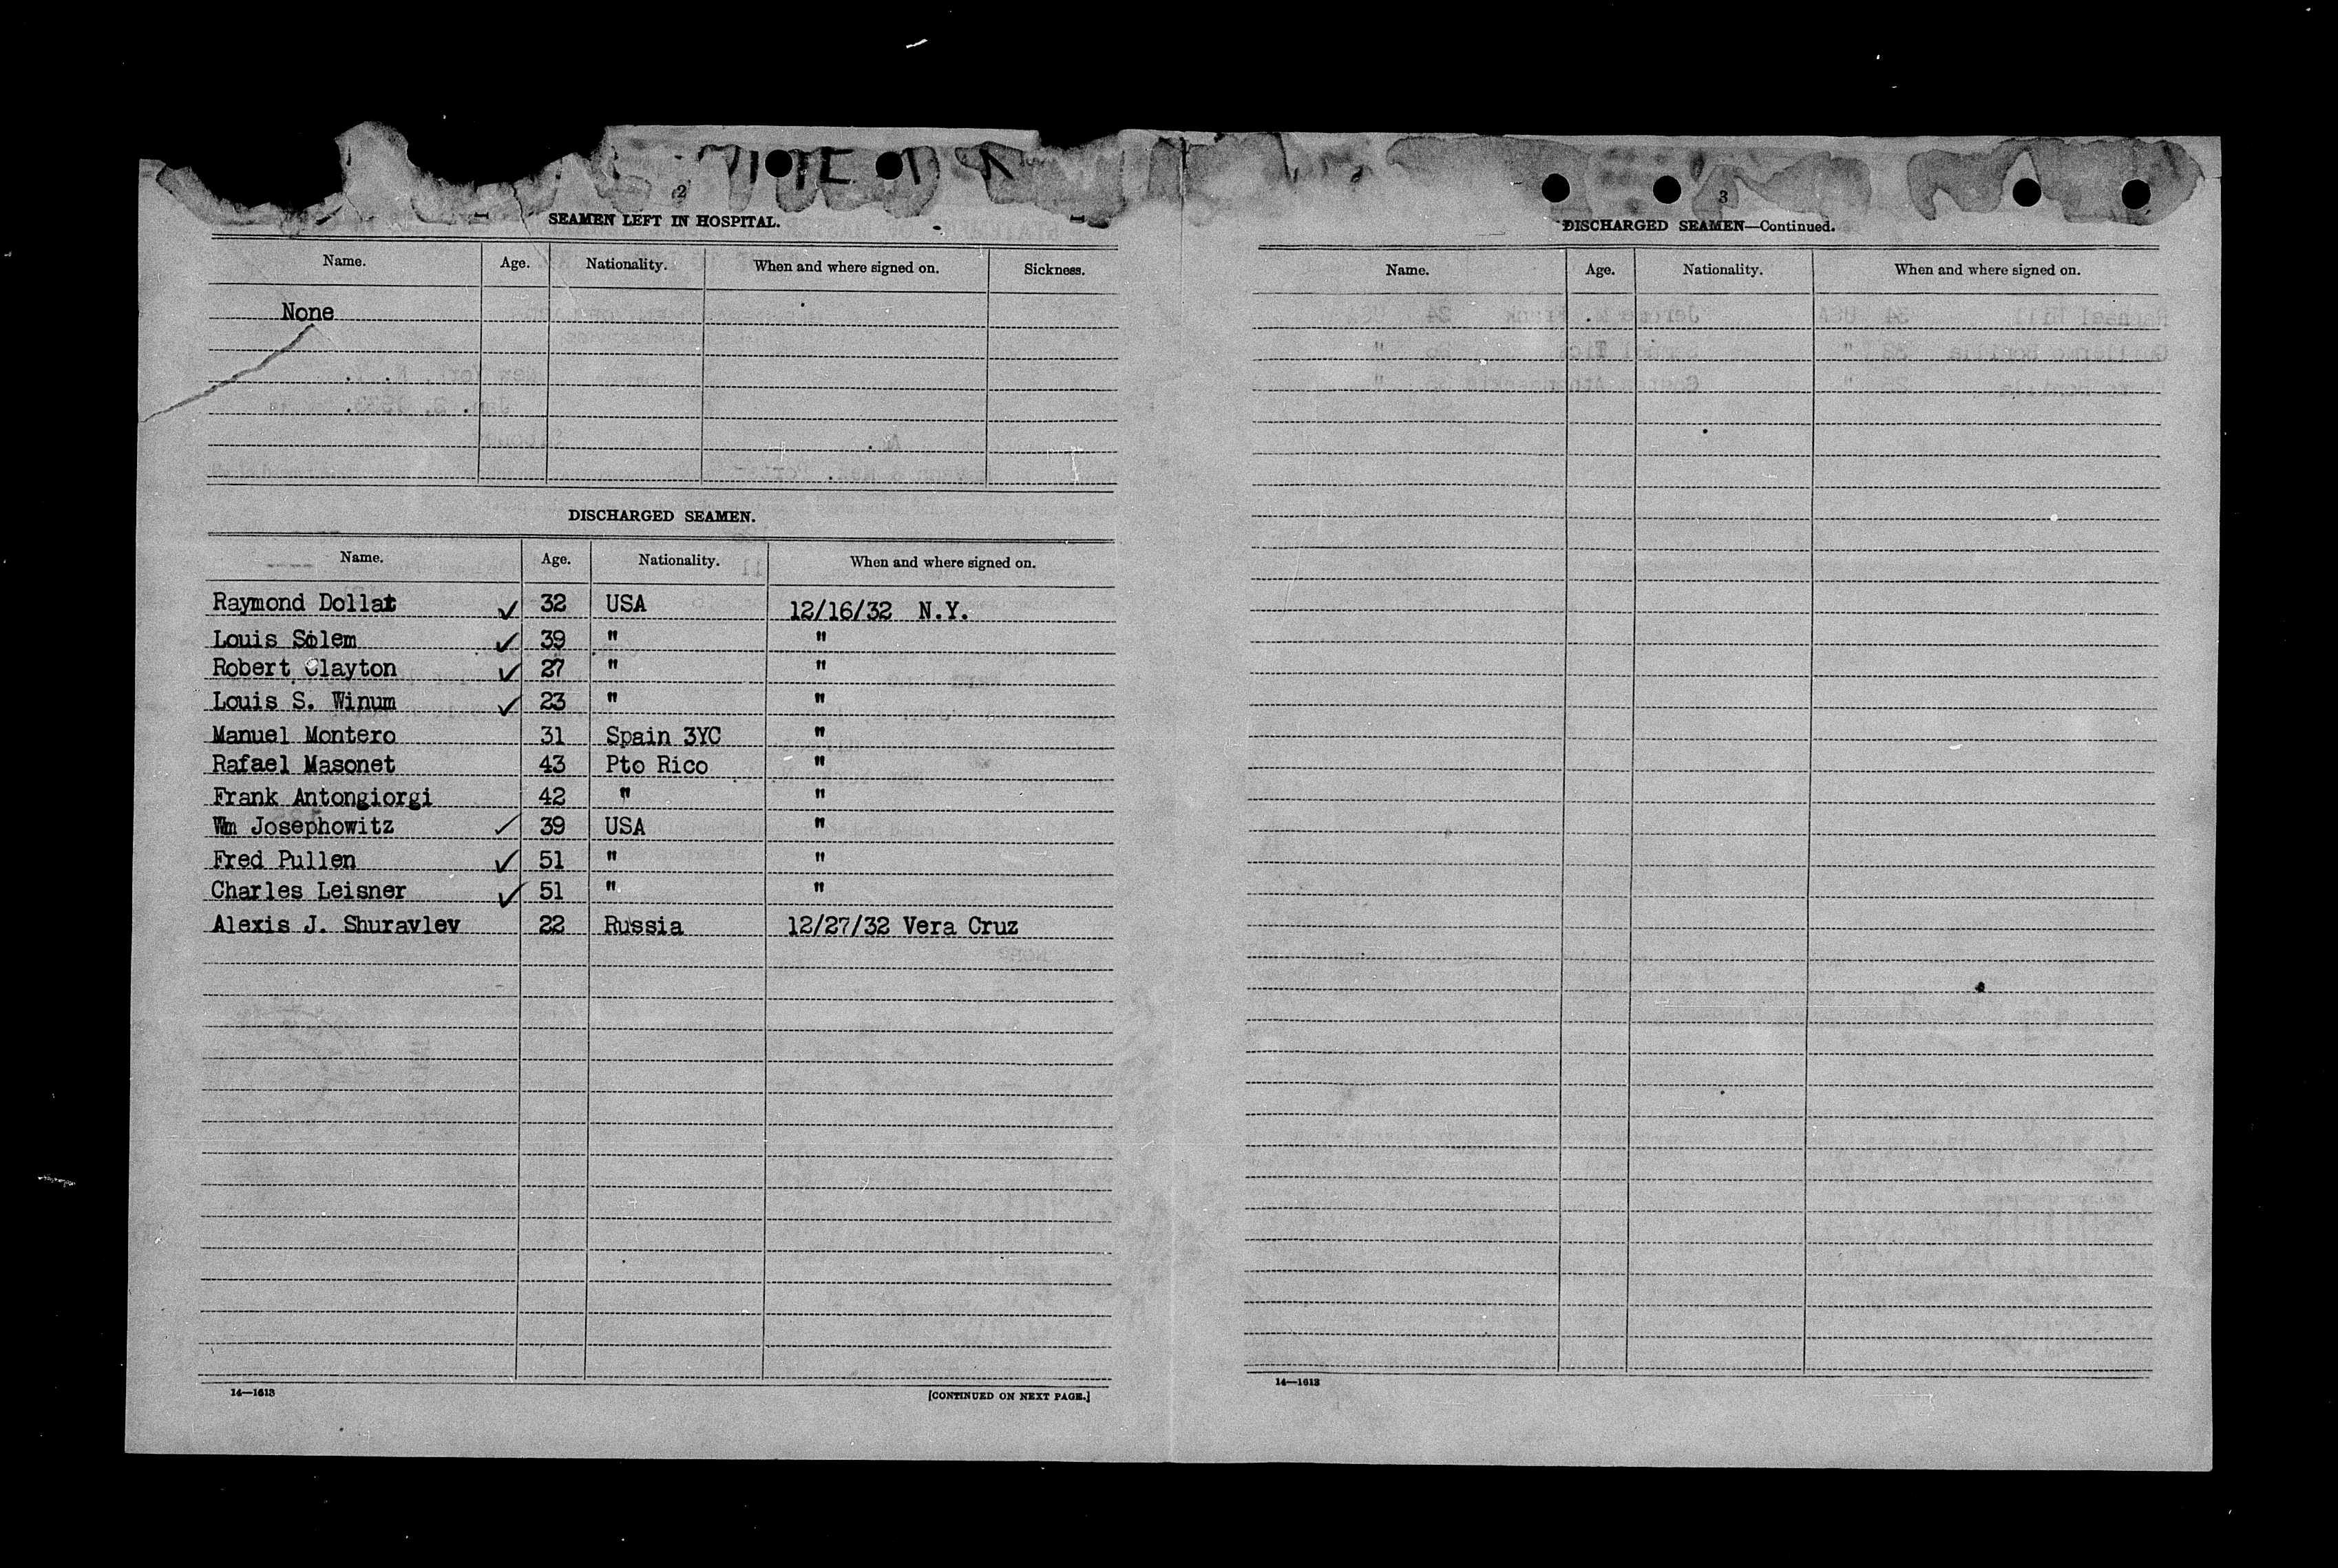 2
SEAMEN LEFT IN HOSPITAL.
Name. Age. Nationality. When and where signed on. Sickness.
None
DISCHARGED SEAMEN.
Name. Age. Nationality. When and where signed on.
Raymond Dollat ✓ 32 USA 12/16/32 N.Y.
Louis Solem ✓ 39 " "
Robert Clayton ✓ 27 " "
Louis S. Winum ✓ 23 " "
Manuel Montero 31 Spain 3YC "
Rafael Masonet 43 Pto Rico "
Frank Antongiorgi 42 " "
Wm Josephowitz ✓ 39 USA "
Fred Pullen ✓ 51 " "
Charles Leisner ✓ 51 " "
Alexis J. Shuravlev 22 Russia 12/27/32 Vera Cruz
14—1613 [CONTINUED ON NEXT PAGE.]
3
DISCHARGED SEAMEN—Continued.
Name. Age. Nationality. When and where signed on.
14—1613